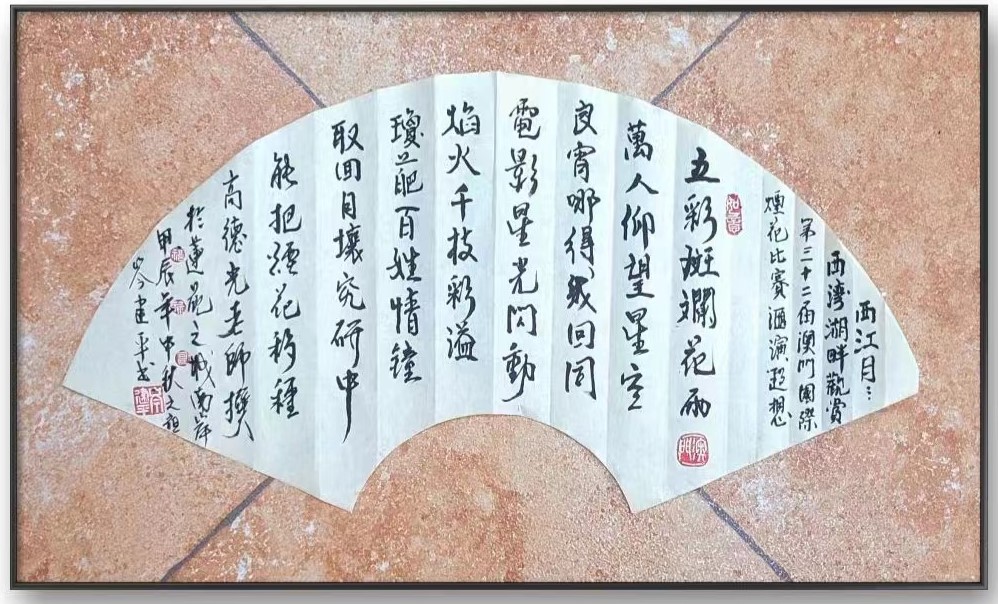 西江月：
西灣湖畔觀賞
第三十二屆澳門國際
煙花比賽滙演遐想
如意
五彩斑斕花雨
澳門
萬人仰望星空
良宵哪得幾回同
電影星光閃動
焰火千枝彩溢
瓊葩百姓情鐘
取回月壤究研中
能把煙花移種
高德光老師撰
於蓮花之城南岸
甲辰年中秋之
岑建平书